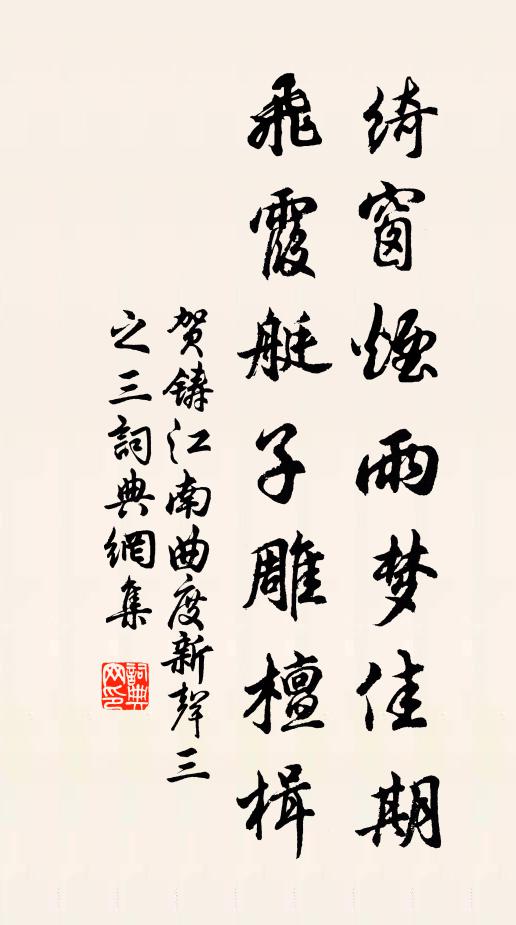 綺窗煙雨梦佳期
飛霞艇子雕檀楫
贺鑄江南曲度新聲三
之三詞典網集
詞典网印